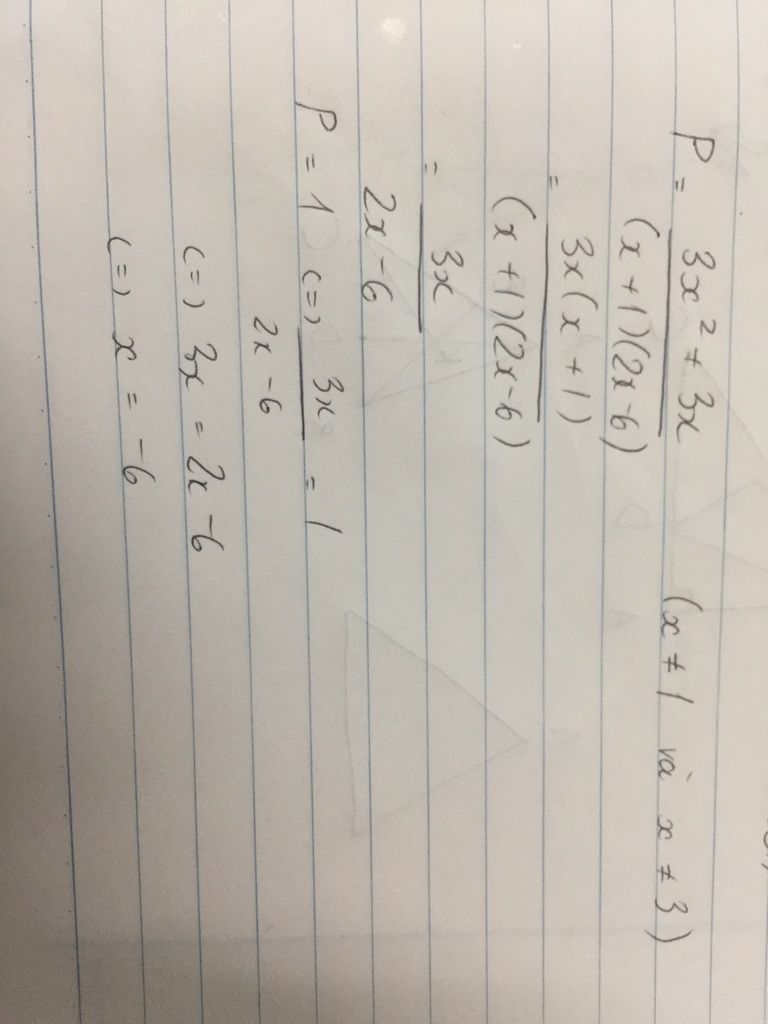 P = 3x² + 3x / (x + 1)(2x - 6) (x ≠ 1 và x ≠ 3)
= 3x(x + 1) / (x + 1)(2x - 6)
= 3x / 2x - 6
P = 1 (=) 3x / 2x - 6 = 1
(=) 3x = 2x - 6
(=) x = -6